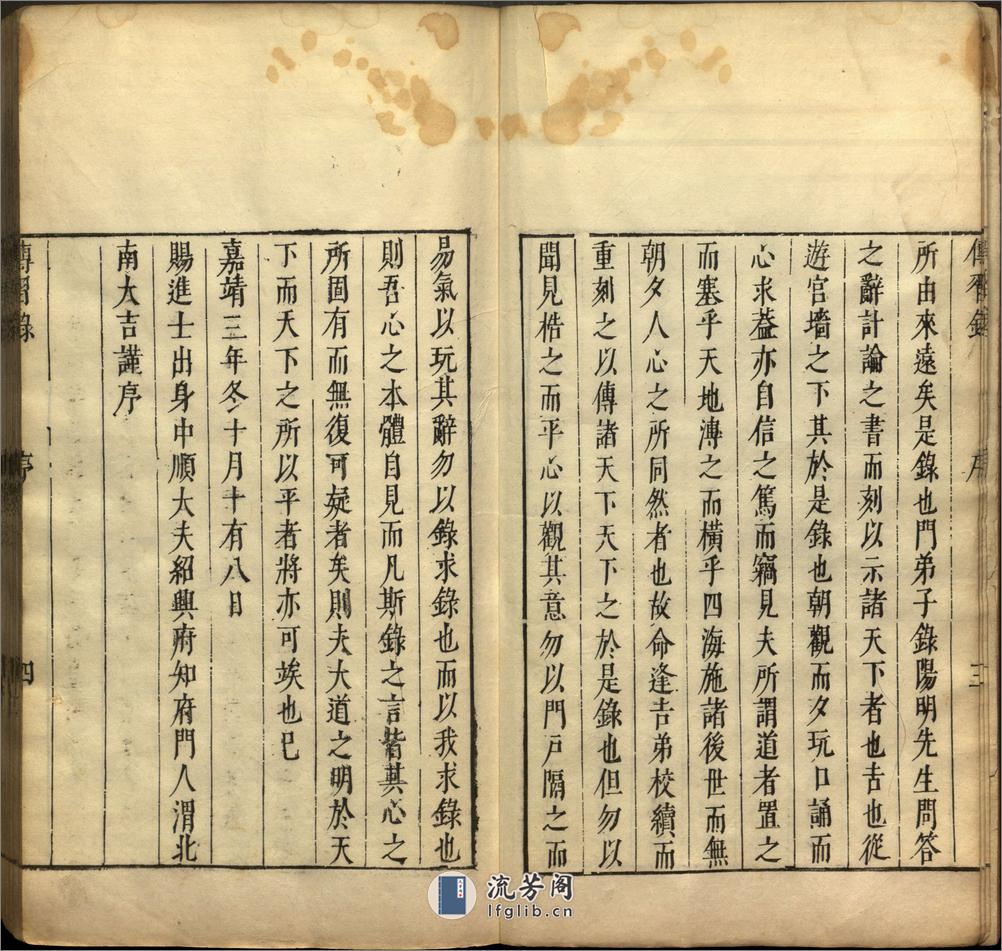 傳習錄 序 三
所由來遠矣是錄也門弟子錄陽明先生問答
之辭討論之書而刻以示諸天下者也吉也從
遊宮墻之下其於是錄也朝觀而夕玩口誦而
心求蓋亦自信之篤而竊見夫所謂道者置之
而塞乎天地溥之而橫乎四海施諸後世而無
朝夕人心之所同然者也故命逢吉弟校續而
重刻之以傳諸天下天下之於是錄也但勿以
聞見梏之而平心以觀其意勿以門戶隔之而
易氣以玩其辭勿以錄求錄也而以我求錄也
則吾心之本體自見而凡斯錄之言皆其心之
所固有而無復可疑者矣則夫大道之明於天
下而天下之所以平者將亦可竢也已
嘉靖三年冬十月十有八日
賜進士出身中順大夫紹興府知府門人渭北
南大吉謹序
傳習錄 序 四
流芳阁
lfglib.cn